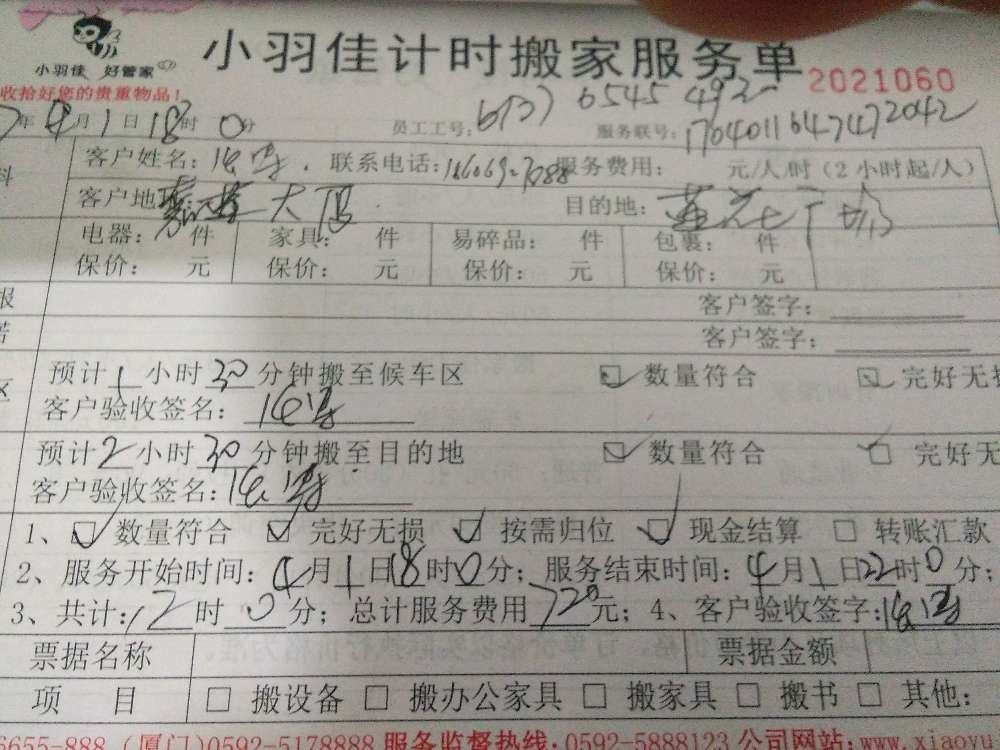 小羽佳计时搬家服务单 2021060
小羽佳 好管家
收拾好您的贵重物品!
7年4月1日18时0分 员工工号: 服务联号:1704011647472042
客户姓名: 联系电话: 服务费用: 元/人/时(2小时起/人)
客户地 大厦 目的地:
电器: 件 家具: 件 易碎品: 件 包裹: 件
保价: 元 保价: 元 保价: 元 保价: 元
客户签字:
客户签字:
预计1小时30分钟搬至候车区 数量符合 完好无损
客户验收签名:
预计2小时30分钟搬至目的地 数量符合 完好无
客户验收签名:
1、☑数量符合 ☑完好无损 ☑按需归位 ☑现金结算 □转账汇款
2、服务开始时间:4月1日18时0分;服务结束时间:4月1日22时0分;
3、共计:12时0分;总计服务费用720元;4、客户验收签字:
票据名称 票据金额
项 目 □ 搬设备 □ 搬办公家具 □ 搬家具 □ 搬书 □ 其他:
6655-888 (厦门)0592-5178888 服务监督热线:0592-5888123 公司网站:www.xiaoyu